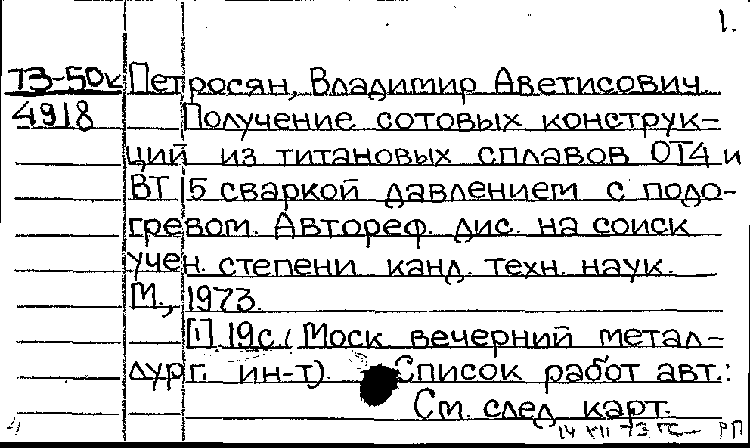 1.
73-50к Петросян, Владимир Аветисович
4918 Получение сотовых конструк-
ций из титановых сплавов ОТ4 и
ВТ 15 сваркой давлением с подо-
гревом. Автореф. дис. на соиск
учен. степени канд. техн. наук.
М., 1973.
[1], 19с. (Моск вечерний метал-
лург. ин-т). Список работ авт.:
См. след. карт.
14 XII 73
РП